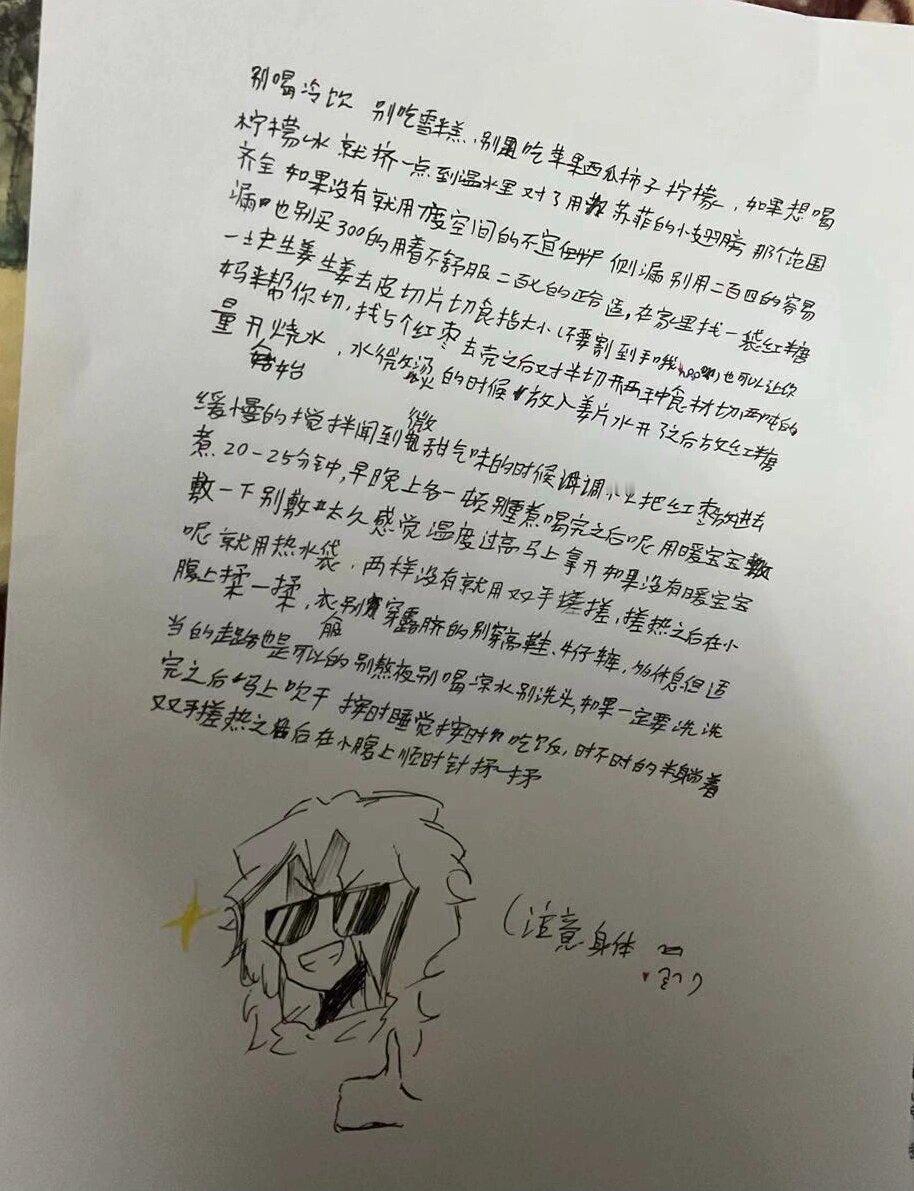 别喝冷饮 别吃雪糕,别吃苹果西瓜柿子柠檬,如果想喝
柠檬水就挤一点到温水里对了用苏菲的小翅膀那个范围
齐全如果没有就用七度空间的不宜侧漏别用二百四的容易
漏也别买300的用着不舒服二百七的正合适,在家里找一袋红糖
一块生姜生姜去皮切片切食指大小(不要割到手哦)也可以让你
妈来帮你切,找5个红枣去壳之后对半切开两种食材切两吨的
量开始烧水,水微烫的时候放入姜片水开了之后放红糖
缓慢的搅拌闻到微甜气味的时候调小火把红枣放进去
煮20-25分钟,早晚上各一顿别重煮喝完之后呢用暖宝宝敷
敷一下别敷太久感觉温度过高马上拿开如果没有暖宝宝
呢就用热水袋,两样没有就用双手搓搓,搓热之后在小
腹上揉一揉,衣服别穿露脐的别穿高鞋、牛仔裤,多休息但适
当的走路也是可以的别熬夜别喝凉水别洗头,如果一定要洗洗
完之后马上吹干 按时睡觉按时吃饭,时不时的半躺着
双手搓热之后在小腹上顺时针揉一揉
(注意身体